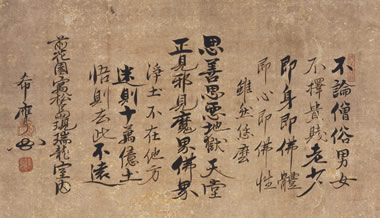 不論僧俗男女
不擇貴賤老少
即身即佛體
即心即佛性
雖然恁麼
思善思惡地獄天堂
正見邪見魔界佛界
淨土不在他方
迷則十萬億土
悟則去此不遠
前花園現瑞龍室内
希庵